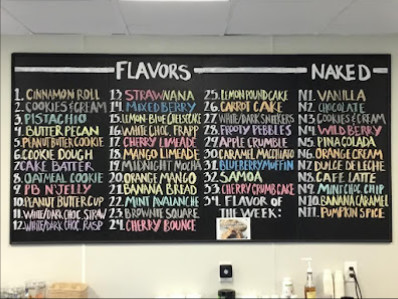 FLAVORS
1. CINNAMON ROLL
2. COOKIES & CREAM
3. PISTACHIO
4. BUTTER PECAN
5. PEANUT BUTTER COOKIE
6. COOKIE DOUGH
7. CAKE BATTER
8. OATMEAL COOKIE
9. PB N' JELLY
10. PEANUT BUTTER CUP
11. WHITE/DARK CHOC STRAW
12. WHITE/DARK CHOC RASP
13. STRAWNANA
14. MIXED BERRY
15. LEMON BLUE CHEESECAKE
16. WHITE CHOC. FRAPP
17. CHERRY LIMEADE
18. MANGO LIMEADE
19. MIDNIGHT MOCHA
20. ORANGE MANGO
21. BANANA BREAD
22. MINT AVALANCHE
23. BROWNIE SQUARE
24. CHERRY BOUNCE
25. LEMON POUND CAKE
26. CARROT CAKE
27. WHITE/DARK SNICKERS
28. FROOTY PEBBLES
29. APPLE CRUMBLE
30. CARAMEL MACCHIATO
31. BLUEBERRY MUFFIN
32. SAMOA
33. CHERRY CRUMB CAKE
34. FLAVOR OF
THE WEEK:
NAKED
N1. VANILLA
N2. CHOCOLATE
N3. COOKIES & CREAM
N4. WILD BERRY
N5. PINA COLADA
N6. ORANGE CREAM
N7. DULCE DE LECHE
N8. CAFE LATTE
N9. MINT CHOC CHIP
N10. BANANA CARAMEL
N11. PUMPKIN SPICE